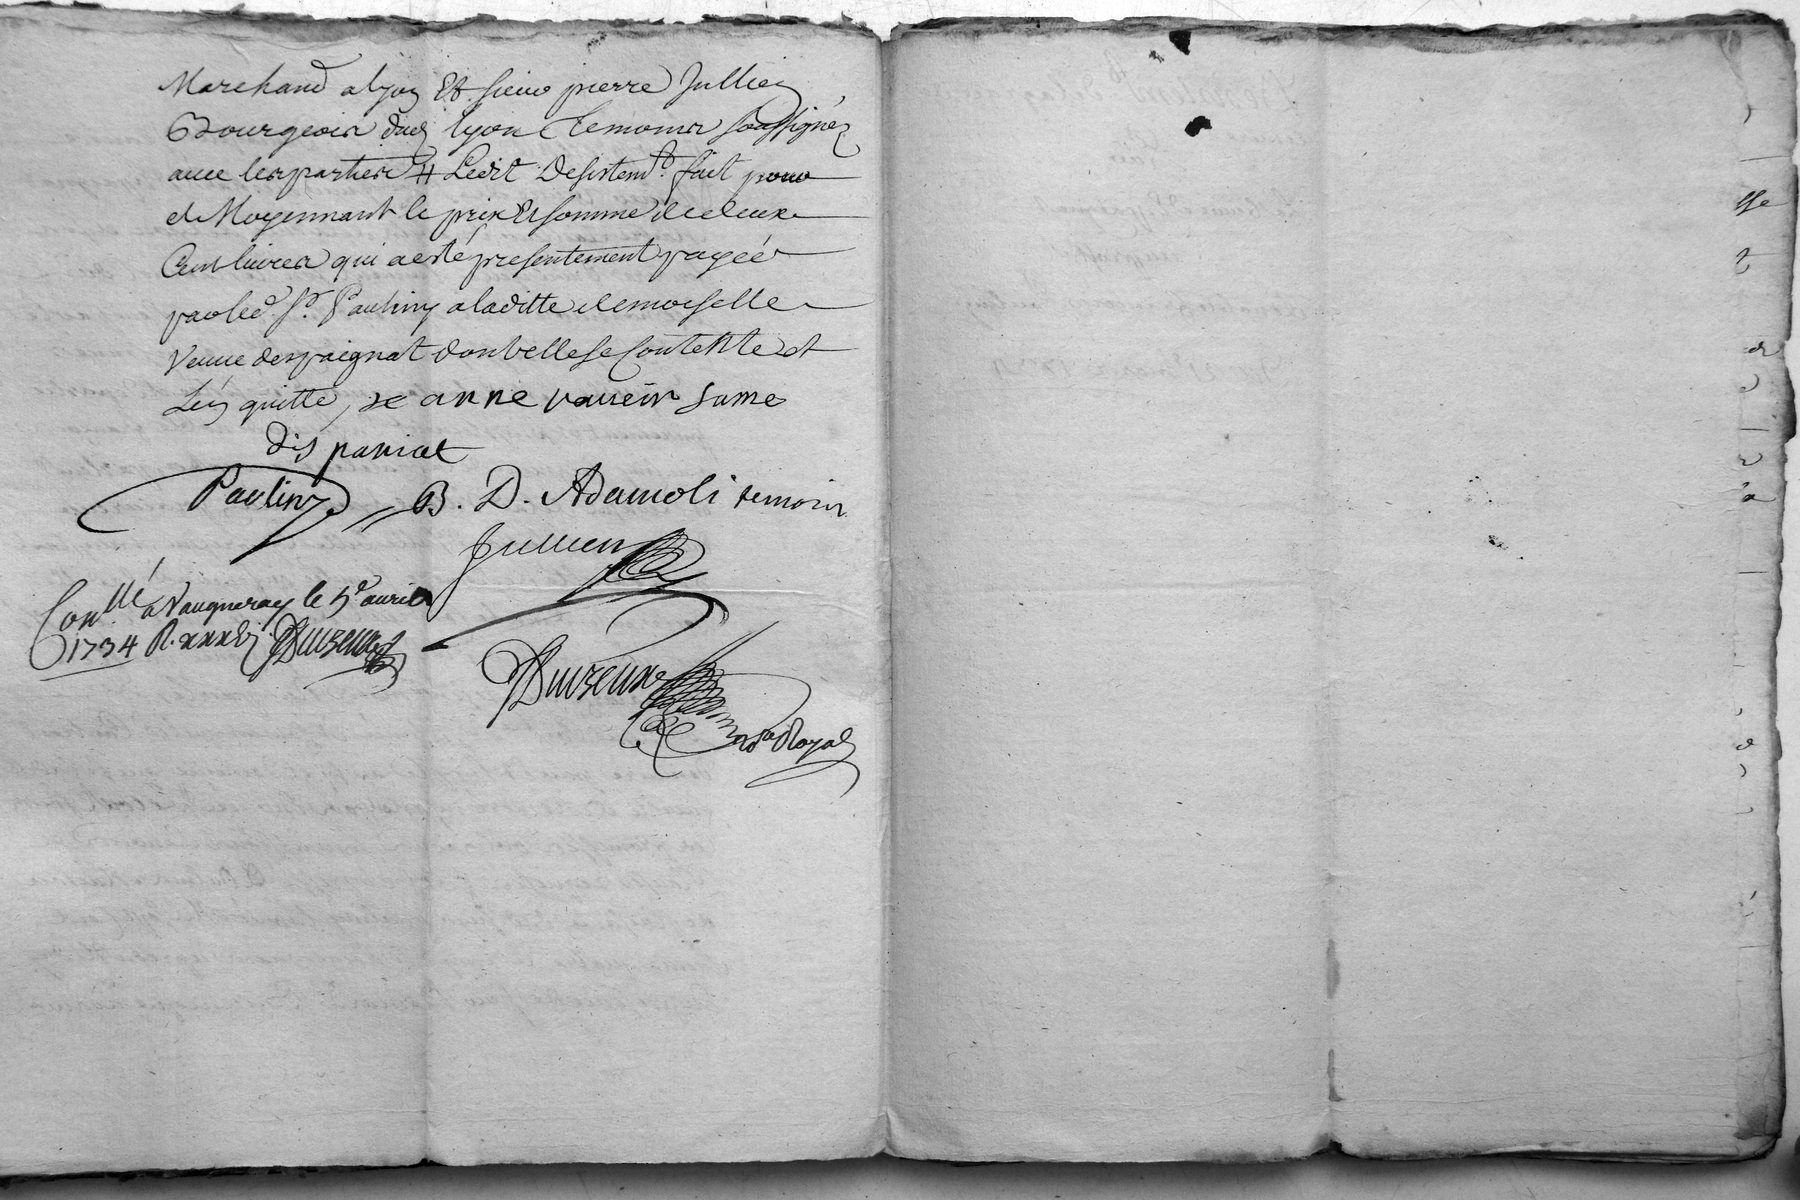 Marchand a lyon Et sieur pierre Jullien
Bourgeois dud lyon temoins soussignéz
avec les parties # Ledt Desistemt. fait pour
et Moyennant le prix Et somme de deux
Cent livres qui a esté presentement payée
par led. Sr. Pauliny a laditte demoiselle
Veuve despaignat dont elle se Contente et
L'en quitte, je anne vausein fame
dispaniat
Pauliny B. D. Adamoli temoin
Jullien
Conllé a Vaugneray le 5e avril
1734 R.
Nore Royal